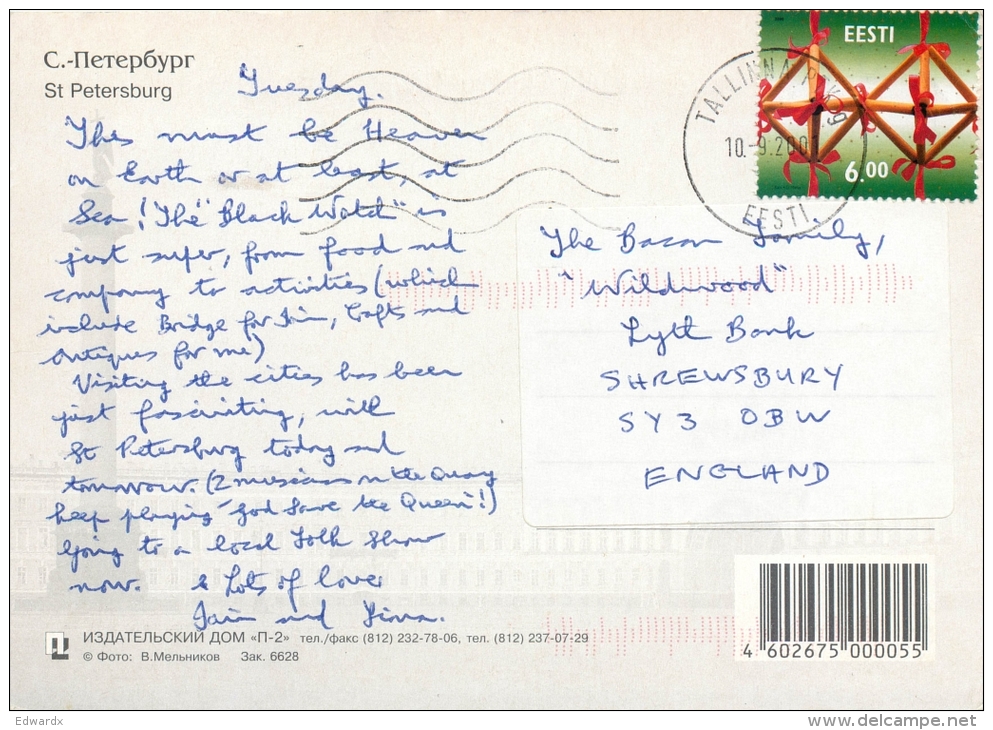 С.-Петербург
St Petersburg
Tuesday.
This must be Heaven
on Earth or at least, at
Sea! The "Black Watch" is
just super, from food and
company to activities (which
include Bridge for Iain, Crafts and
Antiques for me)
Visiting the cities has been
just fascinating, with
St Petersburg today and
tomorrow. (2 musicians on the Quay
keep playing "God Save the Queen"!)
Going to a local Folk Show
now. & Lots of love,
Iain and
EESTI
6.00
TALLINNA
10.-9.200
EESTI
The Bacon Family,
"Wildwood"
Lyth Bank
SHREWSBURY
SY3 0BW
ENGLAND
ИЗДАТЕЛЬСКИЙ ДОМ «П-2» тел./факс (812) 232-78-06, тел. (812) 237-07-29
© Фото: В.Мельников Зак. 6628
4 602675 000055
Edwardx
www.delcampe.net